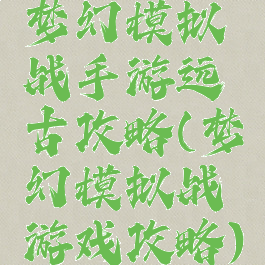 梦幻模拟
战手游远
古攻略(梦
幻模拟战
游戏攻略)